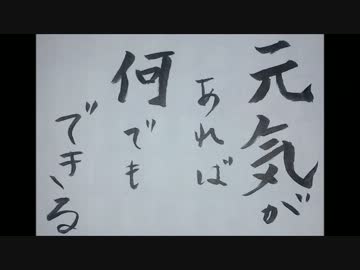 元気が
あれば
何でも
できる